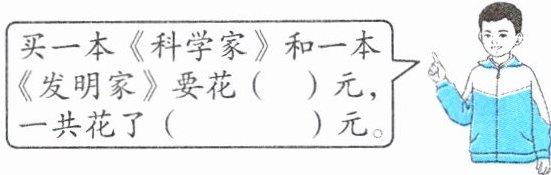 买一本《科学家》和一本
《发明家》要花（　）元，
一共花了（　　　　）元。